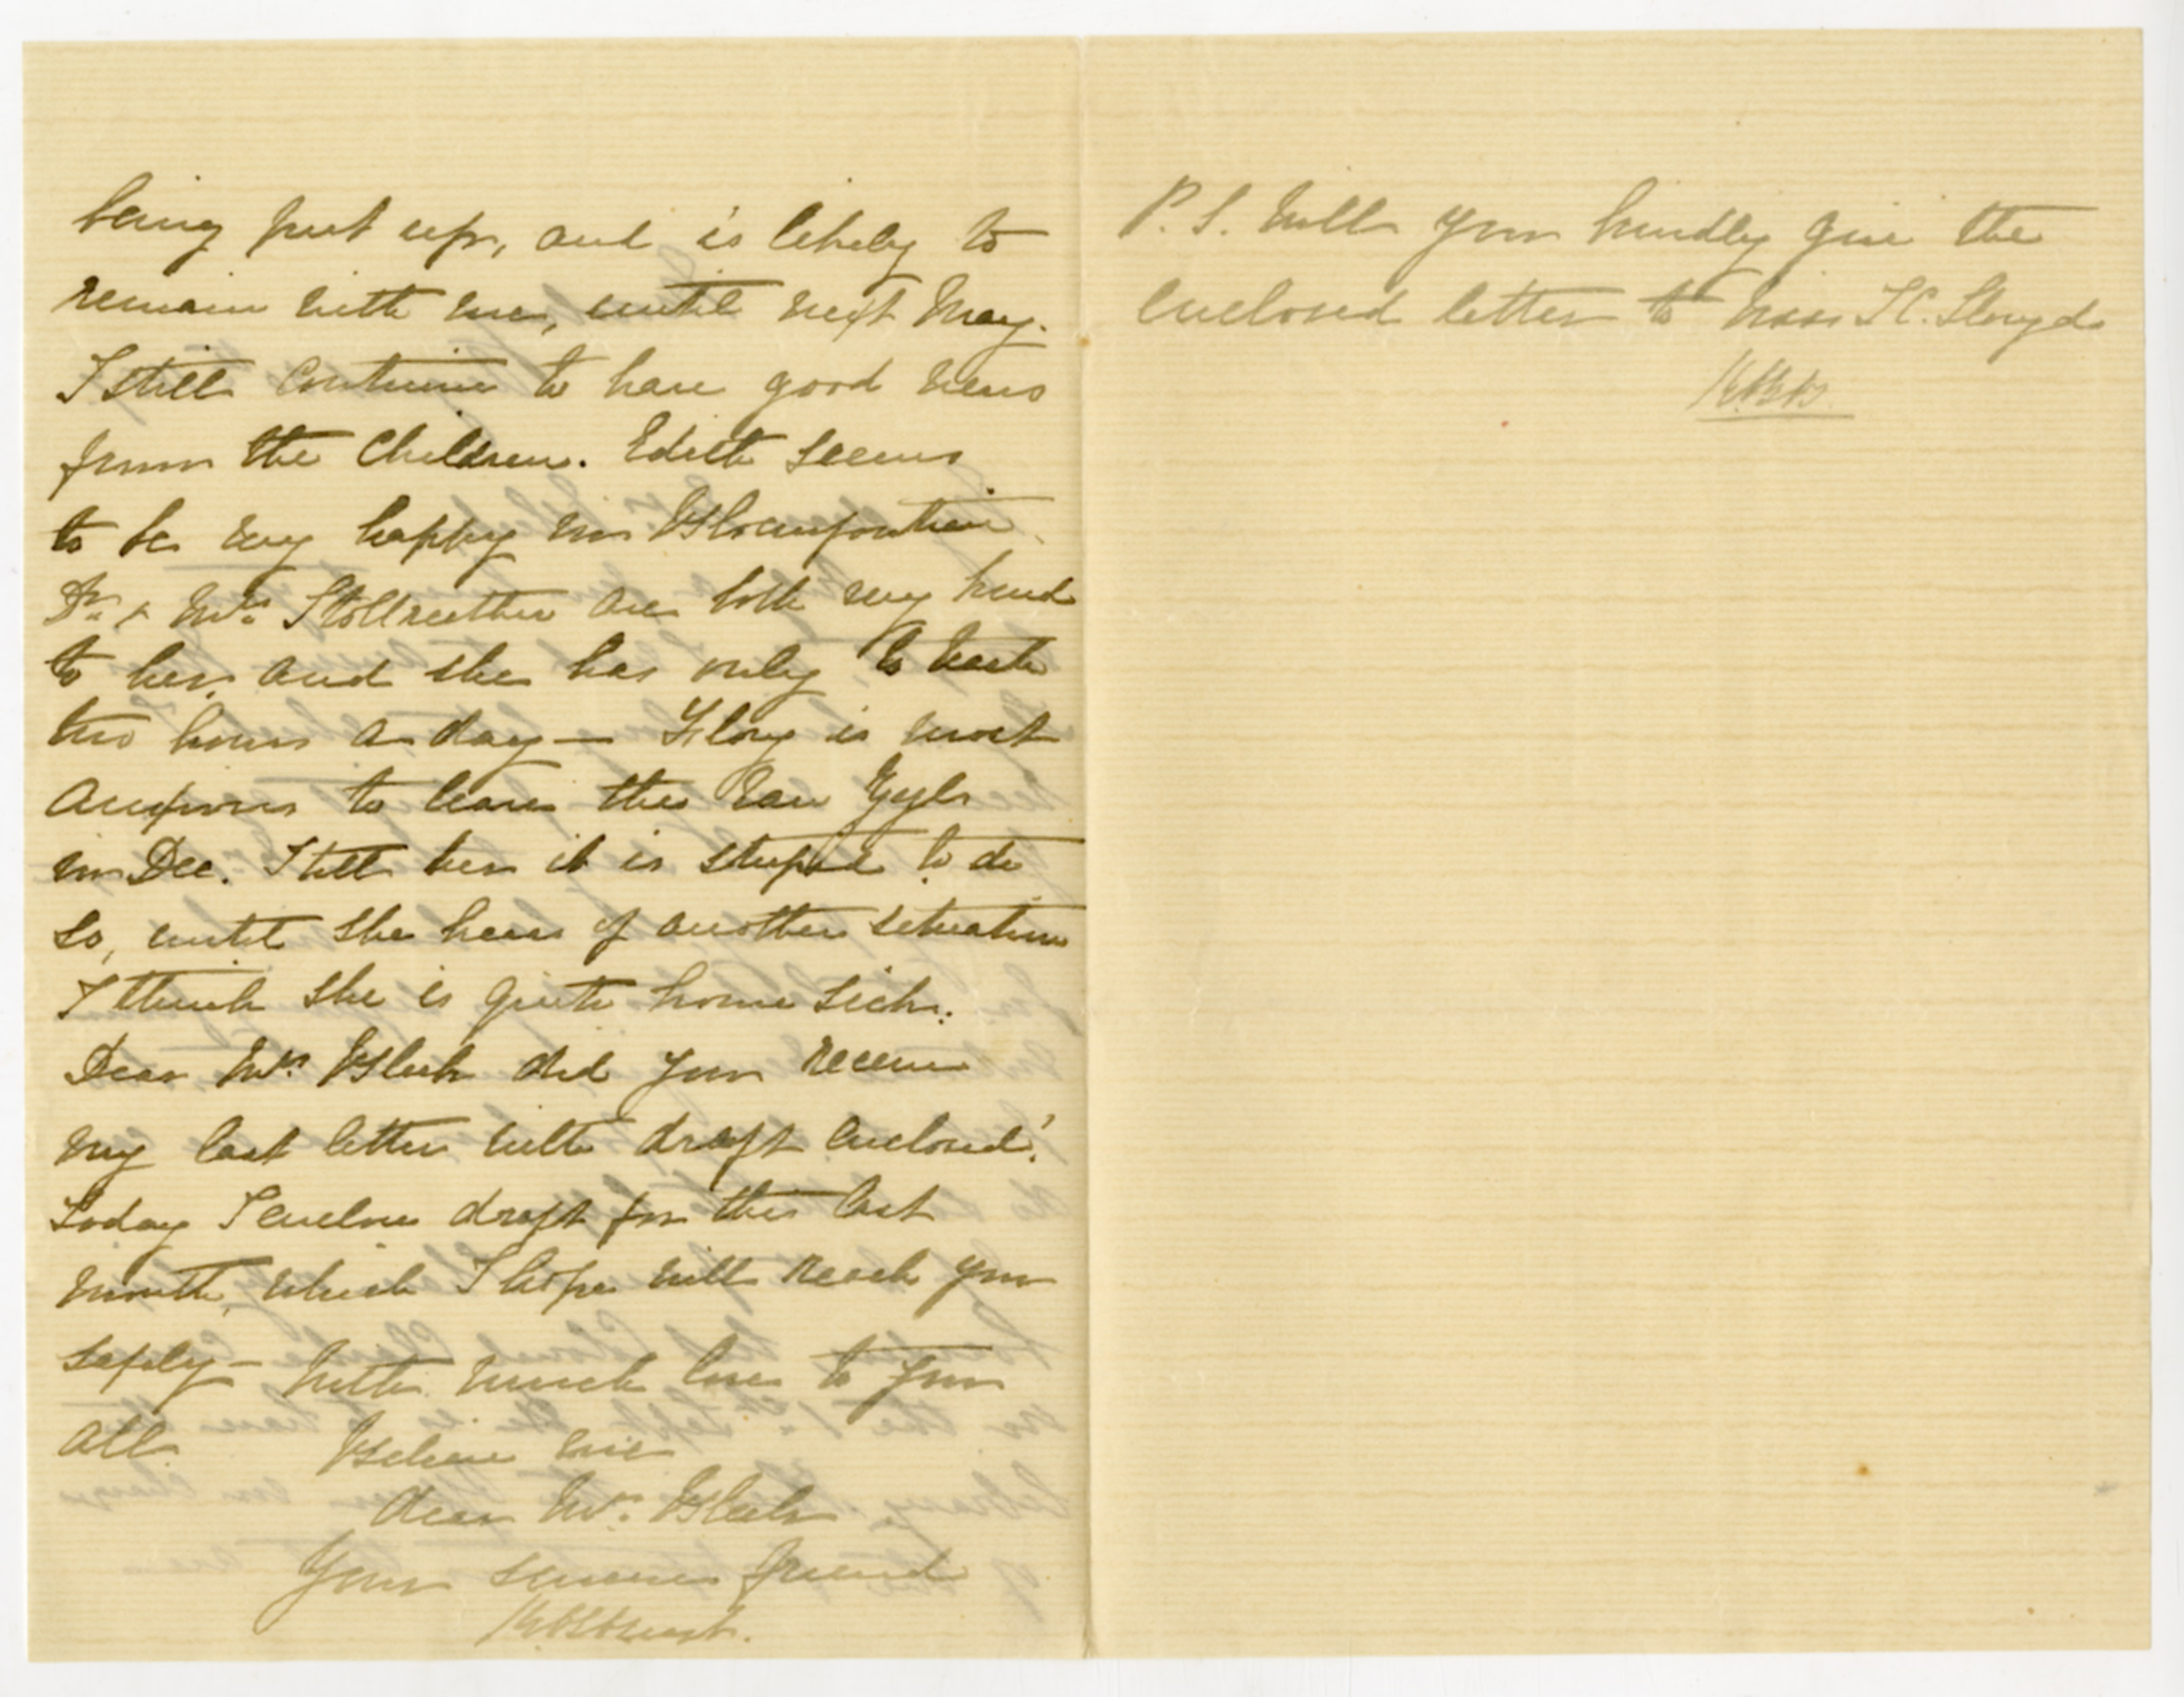 being put up, and is likely to
remain with me, until next May.
I still continue to have good news
from the Children. Edith seems
to be very happy in Bloemfontein.
Dr. & Mrs. Stollreither are both very kind
to her, and she has only to teach
two hours a day — Flory is most
anxious to leave the Van Zyls
in Dec. I tell her it is stupid to do
so, until she hears of another situation
I think she is quite home sick.
Dear Mrs. Bleek did you receive
my last letter with draft enclosed?
Today I enclose draft for this last
month, which I hope will reach you
safely — With much love to you
all. Believe me
dear Mrs. Bleek
Your sincere friend
P.S. Will you kindly give the
enclosed letter to Miss Lloyd